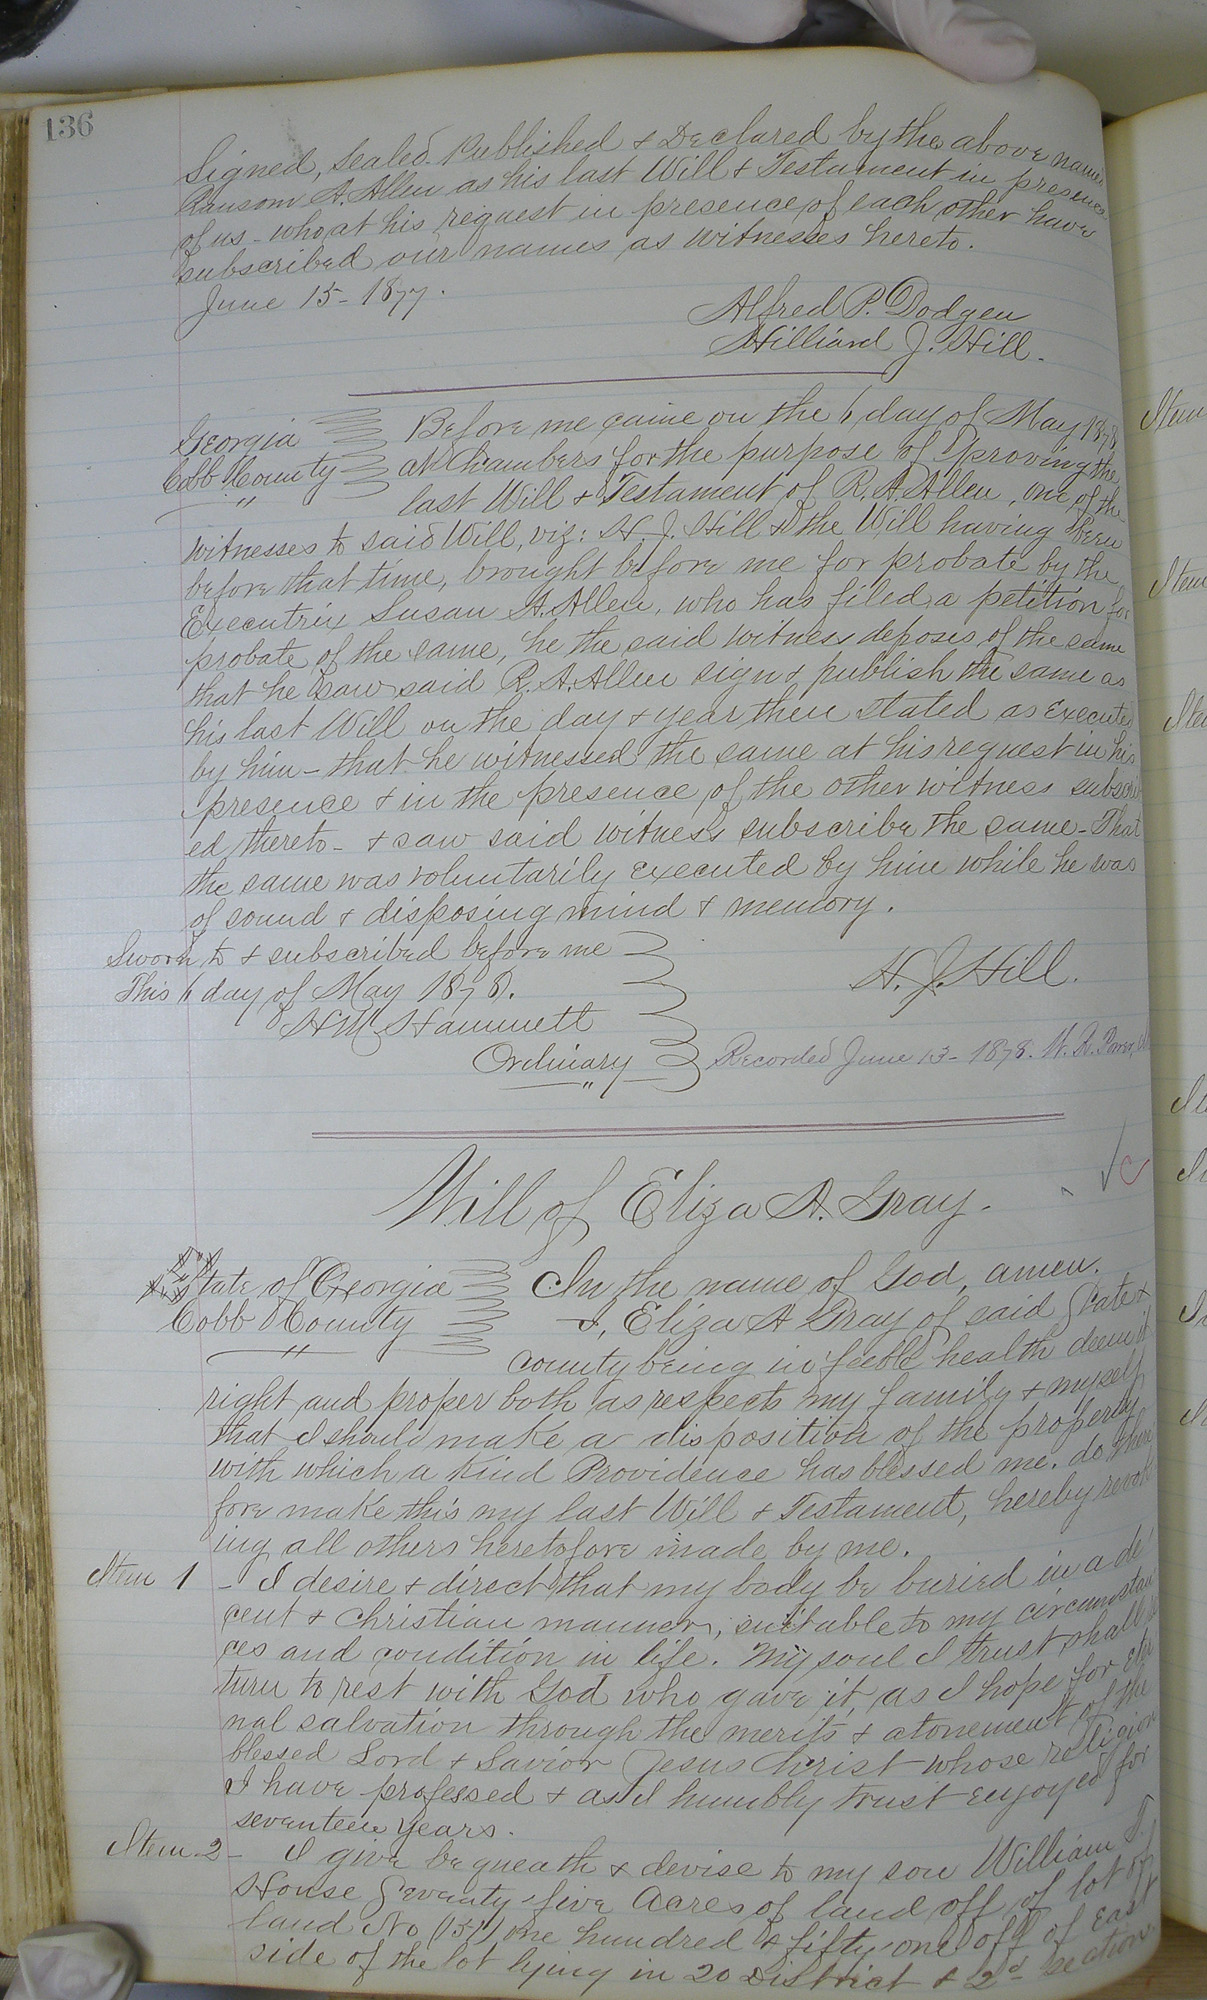 136
Signed, Sealed Published & Declared by the above named
Ransom A. Allen as his last Will & Testament in presence
of us - who at his request in presence of each other have
subscribed our names as witnesses hereto.
June 15 - 1877.
Alfred P. Dodgen
Hilliard J. Hill.
Georgia
Cobb County
"
Before me came on the 6 day of May 1878
at Chambers for the purpose of proving the
last Will & Testament of R. A. Allen, one of the
witnesses to said Will, viz: H. J. Hill & the Will having been
before that time, brought before me for probate by the
Executrix Susan A. Allen, who has filed a petition for
probate of the same, he the said witness deposes of the same
that he saw said R. A. Allen sign & publish the same as
his last Will on the day & year then stated as executed
by him - that he witnessed the same at his request in his
presence & in the presence of the other witness subscrib
ed thereto - & saw said witness subscribe the same - That
the same was voluntarily executed by him while he was
of sound & disposing mind & memory.
Sworn to & subscribed before me
This 6 day of May 1878.
H. M. Hammett
Ordinary
"
H. J. Hill.
Recorded June 13 - 1878.
Will of Eliza A. Gray.
State of Georgia
Cobb County
"
In the name of God, amen.
I, Eliza A Gray of said State &
county being in feeble health deem it
right and proper both as respects my family & myself
that I should make a disposition of the property
with which a kind Providence has blessed me. do there
fore make this my last Will & Testament, hereby revok
ing all others heretofore made by me.
Item 1 - I desire & direct that my body be buried in a de
cent & christian manner, suitable to my circumstan
ces and condition in life. My soul I trust shall re
turn to rest with God who gave it, as I hope for eter
nal salvation through the merits & atonement of the
blessed Lord & Savior Jesus Christ whose religion
I have professed & as I humbly trust enjoyed for
seventeen years.
Item 2 - I give bequeath & devise to my son William T.
House Seventy-five Acres of land off of lot of
land No (151) one hundred & fifty-one off of East
side of the lot lying in 20 District & 2d section